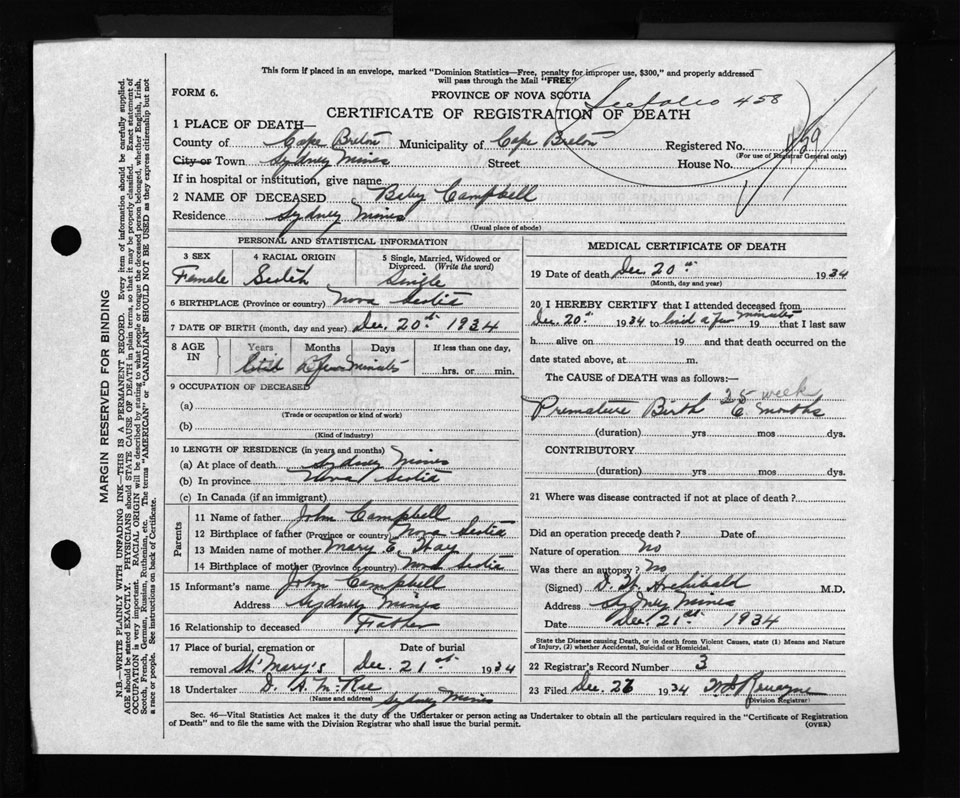 This form if placed in an envelope, marked "Dominion Statistics—Free, penalty for improper use, $300," and properly addressed
will pass through the Mail "FREE"
FORM 6.
PROVINCE OF NOVA SCOTIA
See folio 458
CERTIFICATE OF REGISTRATION OF DEATH
1 PLACE OF DEATH—
County of Cape Breton Municipality of Cape Breton Registered No.
(For use of Registrar General only)
City or Town Sydney Mines Street House No.
If in hospital or institution, give name
2 NAME OF DECEASED Baby Campbell
Residence Sydney Mines
(Usual place of abode)
PERSONAL AND STATISTICAL INFORMATION
3 SEX Female
4 RACIAL ORIGIN Scotch
5 Single, Married, Widowed or Divorced. (Write the word) Single
6 BIRTHPLACE (Province or country) Nova Scotia
7 DATE OF BIRTH (month, day and year) Dec. 20th 1934
8 AGE IN Years Months Days If less than one day, hrs. or min.
a few minutes
9 OCCUPATION OF DECEASED
(a)
(Trade or occupation or kind of work)
(b)
(Kind of industry)
10 LENGTH OF RESIDENCE (in years and months)
(a) At place of death Sydney Mines
(b) In province Nova Scotia
(c) In Canada (if an immigrant)
Parents
11 Name of father John Campbell
12 Birthplace of father (Province or country) Nova Scotia
13 Maiden name of mother Mary E.
14 Birthplace of mother (Province or country) Nova Scotia
15 Informant's name John Campbell
Address Sydney Mines
16 Relationship to deceased Father
17 Place of burial, cremation or removal St Mary's
Date of burial Dec. 21st 1934
18 Undertaker D. A. McRae
(Name and address) Sydney Mines
MEDICAL CERTIFICATE OF DEATH
19 Date of death Dec 20th 1934
(Month, day and year)
20 I HEREBY CERTIFY that I attended deceased from
Dec. 20th 1934 to lived a few minutes 19 that I last saw
h alive on 19 and that death occurred on the
date stated above, at m.
The CAUSE of DEATH was as follows:—
25 week
Premature Birth 6 months
(duration) yrs mos dys.
CONTRIBUTORY
(duration) yrs mos dys.
21 Where was disease contracted if not at place of death?
Did an operation precede death? Date of
Nature of operation No
Was there an autopsy? No
(Signed) D. W. Archibald M.D.
Address Sydney Mines
Date Dec 21st 1934
State the Disease causing Death, or in death from Violent Causes, state (1) Means and
Nature of Injury, (2) whether Accidental, Suicidal or Homicidal.
22 Registrar's Record Number 3
23 Filed Dec. 26 1934
(Division Registrar)
Sec. 46—Vital Statistics Act makes it the duty of the Undertaker or person acting as Undertaker to obtain all the particulars required in the "Certificate of Registration
of Death" and to file the same with the Division Registrar who shall issue the burial permit.
(OVER)
MARGIN RESERVED FOR BINDING
N.B.—WRITE PLAINLY WITH UNFADING INK—THIS IS A PERMANENT RECORD. Every item of information should be carefully supplied.
AGE should be stated EXACTLY. PHYSICIANS should STATE CAUSE OF DEATH in plain terms, so that it may be properly classified. Exact statement of
OCCUPATION is very important. RACIAL ORIGIN will be described by stating to what people or tongue the deceased person belonged, whether English, Irish,
Scotch, French, German, Russian, Ruthenian, etc. The terms "AMERICAN" or "CANADIAN" SHOULD NOT BE USED as they express citizenship but not
a race or people. See instructions on back of Certificate.